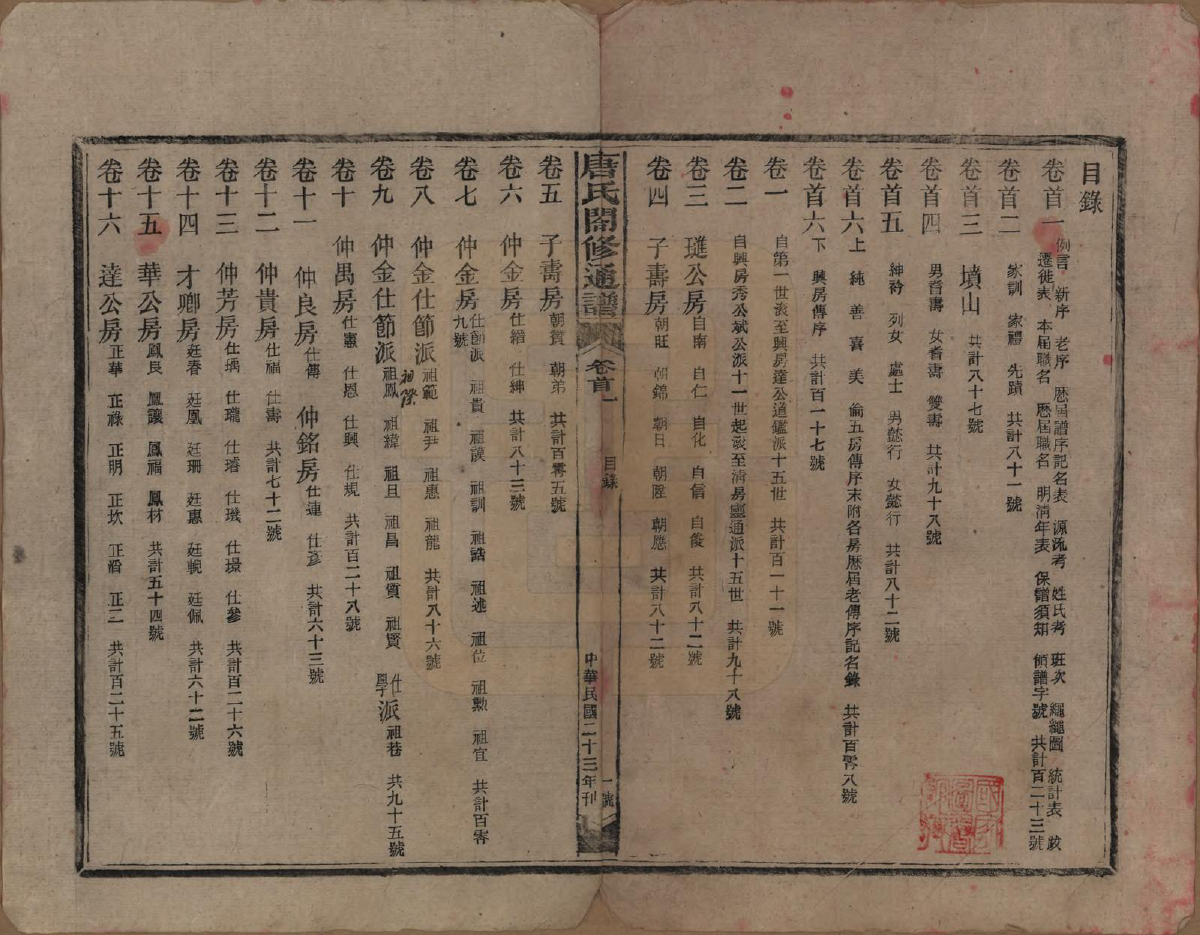 目錄
卷首一 例言 新序 老序 歴屆譜序記名表 源流考 姓氏考 班次 繩繩圖 統計表
遷徙表 本屆職名 歴屆職名 明清年表 保譜須知 領譜字號 共計百二十三號
卷首二 家訓 家禮 先蹟 共計八十一號
卷首三 墳山 共計八十七號
卷首四 男耆壽 女耆壽 雙壽 共計九十八號
卷首五 紳衿 列女 處士 男懿行 女懿行 共計八十二號
卷首六上 純 善 喜 美 倫五房傳序末附各房歴屆老傳序記名錄 共計百零八號
卷首六下 興房傳序 共計百一十七號
卷一 自第一世派至興房達公道鑑派十五世 共計百一十一號
卷二 自興房秀公斌公派十一世起派至清房靈通派十五世 共計九十八號
卷三 璡公房 自南 自仁 自化 自信 自俊 共計八十二號
卷四 子壽房 朝旺 朝錦 朝日 朝陞 朝應 共計八十二號
唐氏閤修通譜 卷首一 目錄 一號
中華民國二十三年刊
卷五 子壽房 朝賓 朝弟 共計百零五號
卷六 仲金房 仕縉 仕紳 共計八十三號
卷七 仲金房 仕節派 祖貴 祖讓 祖訓 祖誥 祖述 祖位 祖勲 祖宜 共計百零九號
卷八 仲金仕節派 祖範 祖尹 祖惠 祖龍 共計八十六號
卷九 仲金仕節派 祖鳳 祖緯 祖旦 祖昌 祖質 祖賢 仕學派 祖巷 共九十五號
卷十 仲禺房 仕憲 仕恩 仕興 仕規 共計百二十八號
卷十一 仲良房 仕傳 仲銘房 仕連 仕彦 共計六十三號
卷十二 仲貴房 仕福 仕壽 共計七十二號
卷十三 仲芳房 仕瑀 仕瓏 仕璿 仕璣 仕璟 仕參 共計百二十六號
卷十四 才卿房 廷春 廷凰 廷珊 廷惠 廷輗 廷佩 共計六十二號
卷十五 華公房 鳳良 鳳讓 鳳福 鳳材 共計五十四號
卷十六 達公房 正華 正祿 正明 正坎 正滑 正二 共計百二十五號